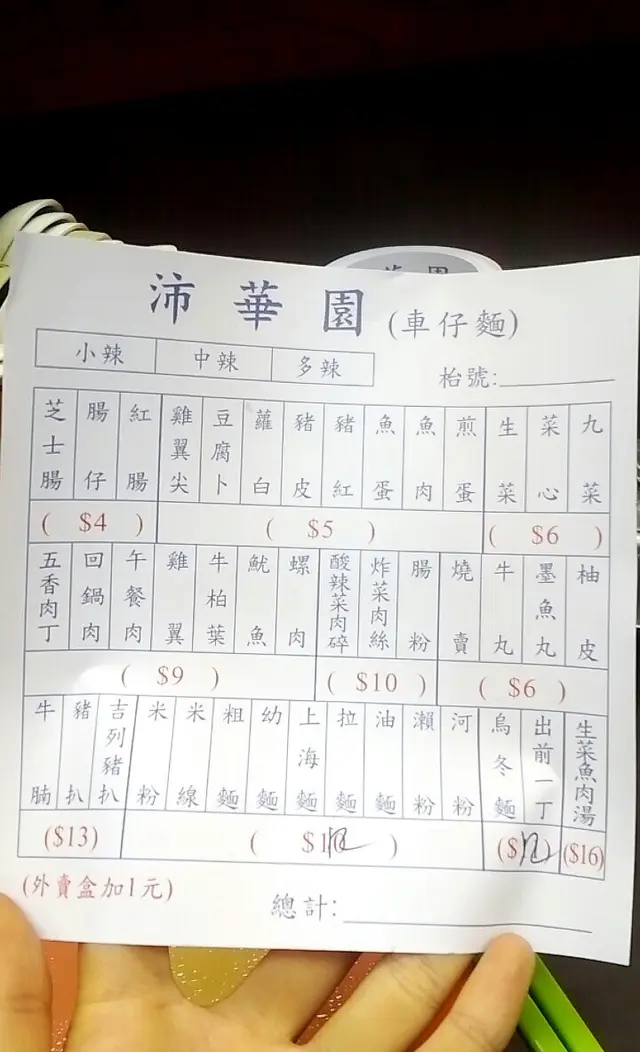 華園
沛華園(車仔麵)
小辣 中辣 多辣
枱號:
芝士腸 腸仔 紅腸 雞翼尖 豆腐卜 蘿白 豬皮 豬紅 魚蛋 魚肉 煎蛋 生菜 菜心 九菜
( $4 ) ( $5 ) ( $6 )
五香肉丁 回鍋肉 午餐肉 雞翼 牛柏葉 魷魚 螺肉 酸辣菜肉碎 炸菜肉絲 腸粉 燒賣 牛丸 墨魚丸 柚皮
( $9 ) ( $10 ) ( $6 )
牛腩 豬扒 吉列豬扒 米粉 米線 粗麵 幼麵 上海麵 拉麵 油麵 瀨粉 河粉 烏冬麵 出前一丁 生菜魚肉湯
($13) ( $1 ) ($ ) ($16)
(外賣盒加1元)
總計: